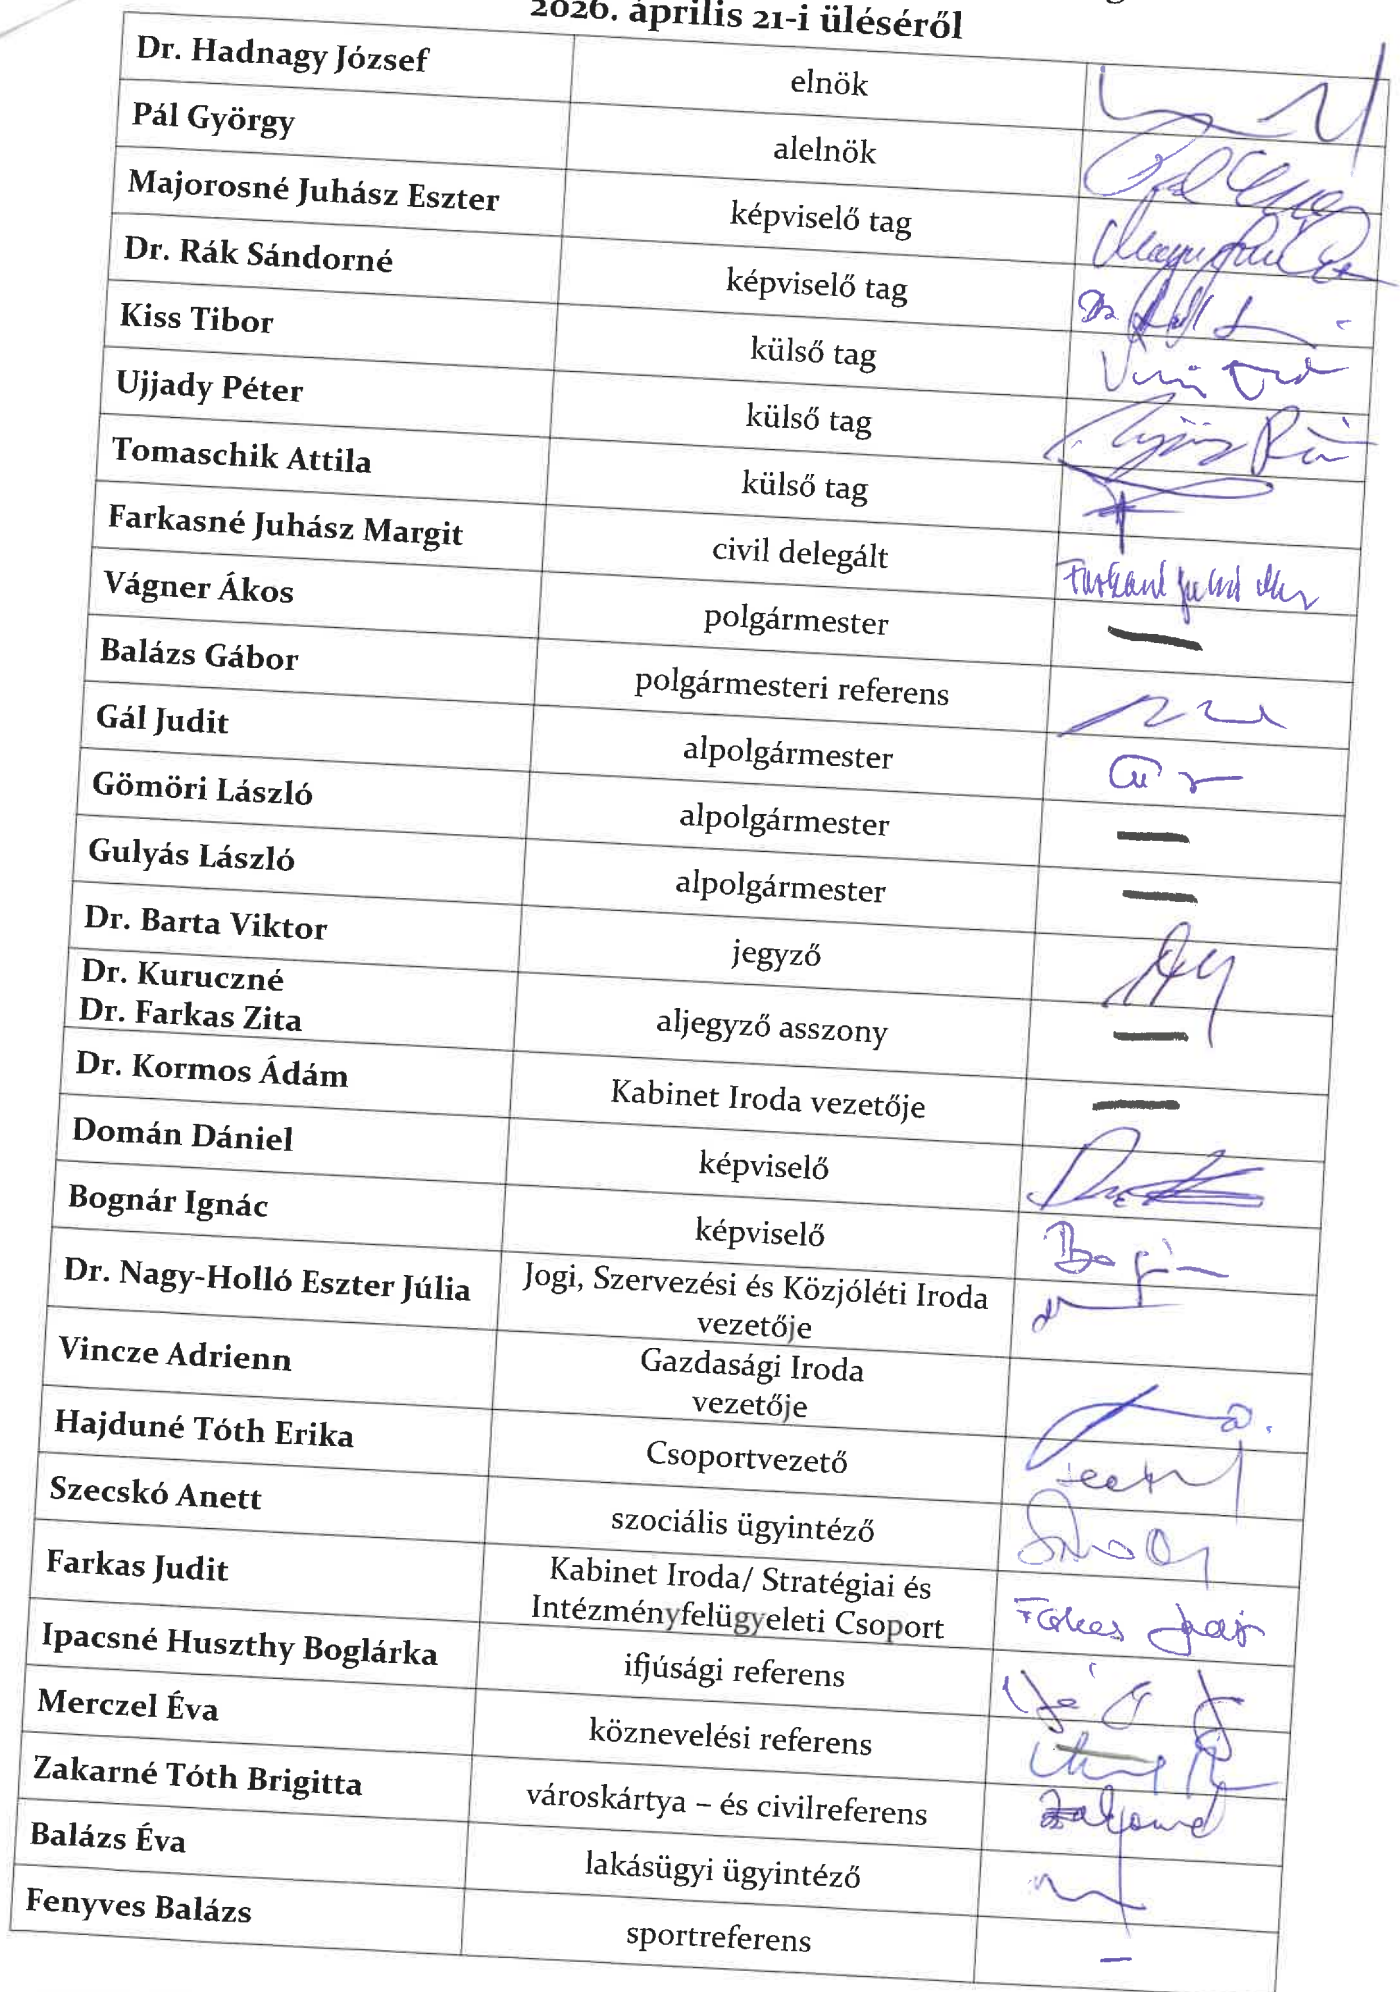 2026. április 21-i üléséről
Dr. Hadnagy József elnök
Pál György alelnök
Majorosné Juhász Eszter képviselő tag
Dr. Rák Sándorné képviselő tag
Kiss Tibor külső tag
Ujjady Péter külső tag
Tomaschik Attila külső tag
Farkasné Juhász Margit civil delegált
Vágner Ákos polgármester
Balázs Gábor polgármesteri referens
Gál Judit alpolgármester
Gömöri László alpolgármester
Gulyás László alpolgármester
Dr. Barta Viktor jegyző
Dr. Kuruczné
Dr. Farkas Zita aljegyző asszony
Dr. Kormos Ádám Kabinet Iroda vezetője
Domán Dániel képviselő
Bognár Ignác képviselő
Dr. Nagy-Holló Eszter Júlia Jogi, Szervezési és Közjóléti Iroda
vezetője
Vincze Adrienn Gazdasági Iroda
vezetője
Hajduné Tóth Erika Csoportvezető
Szecskó Anett szociális ügyintéző
Farkas Judit Kabinet Iroda/ Stratégiai és
Intézményfelügyeleti Csoport Farkas Judit
Ipacsné Huszthy Boglárka ifjúsági referens
Merczel Éva köznevelési referens
Zakarné Tóth Brigitta városkártya – és civilreferens
Balázs Éva lakásügyi ügyintéző
Fenyves Balázs sportreferens –